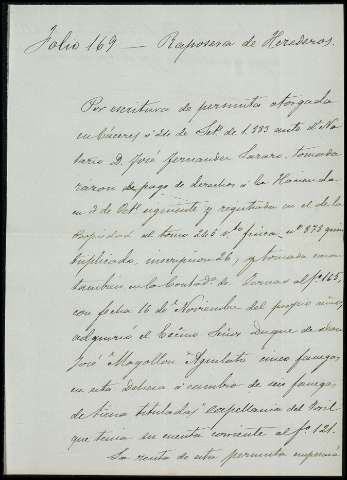 Folio 169 — Raposera de Herederos.
Por escritura de permuta otorgada
en Cáceres á 24 de Set.e de 1.883 ante el No-
tario D. José Fernandez Lazaro, tomada
razon de pago de derechos á la Hacienda
en 3 de Oct.e siguiente y registrada en el de la
Propiedad al tomo 245 finca nº 875 quin-
tuplicado, inscripcion 26, y tomada razon
tambien en la Contad.a de al fº 165,
con fecha 16 de Noviembre del propio año,
adquirió el Ecsmo Señor Duque de
José Mogollon cinco fanegas
en esta Dehesa á cambio de seis fanegas
de tierra tituladas Capellania del
que tenia su cuenta corriente al fº 121.
La renta de esta permuta empezará